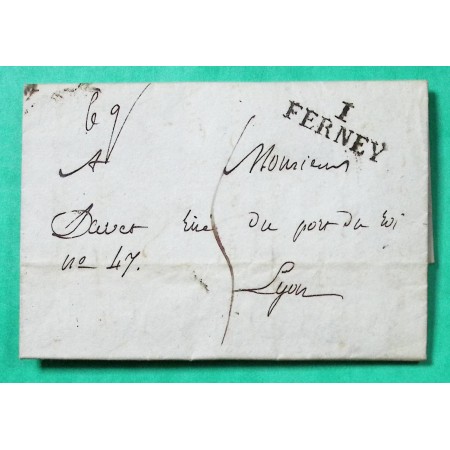 1
FERNEY
A Monsieur
Davet rue du port du roi
no 47.
Lyon